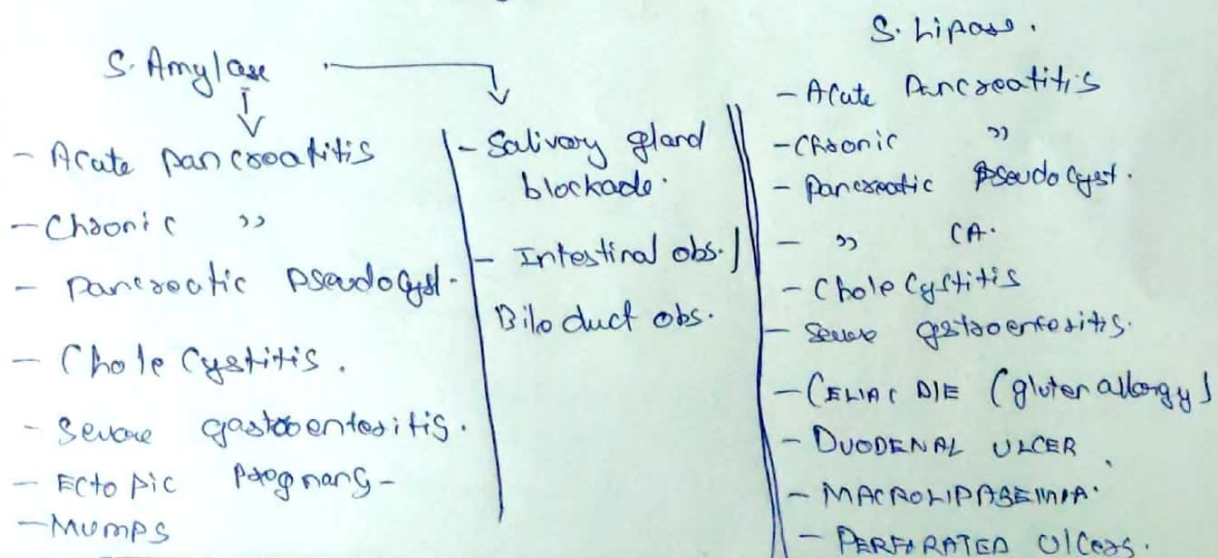 S. Amylase
- Acute pancreatitis
- Chronic ,,
- Pancreatic Pseudocyst.
- Cholecystitis.
- Severe gastroenteritis.
- Ectopic Pregnancy-
- Mumps
- Salivary gland
blockade.
- Intestinal obs./
Bile duct obs.
S. Lipase.
- Acute Pancreatitis
- Chronic ,,
- Pancreatic Pseudocyst.
- ,, CA.
- Cholecystitis
- Severe gastroenteritis.
- CELIAC DIE (gluten allergy)
- DUODENAL ULCER
- MACROLIPASEMIA.
- PERFORATED Ulcers.